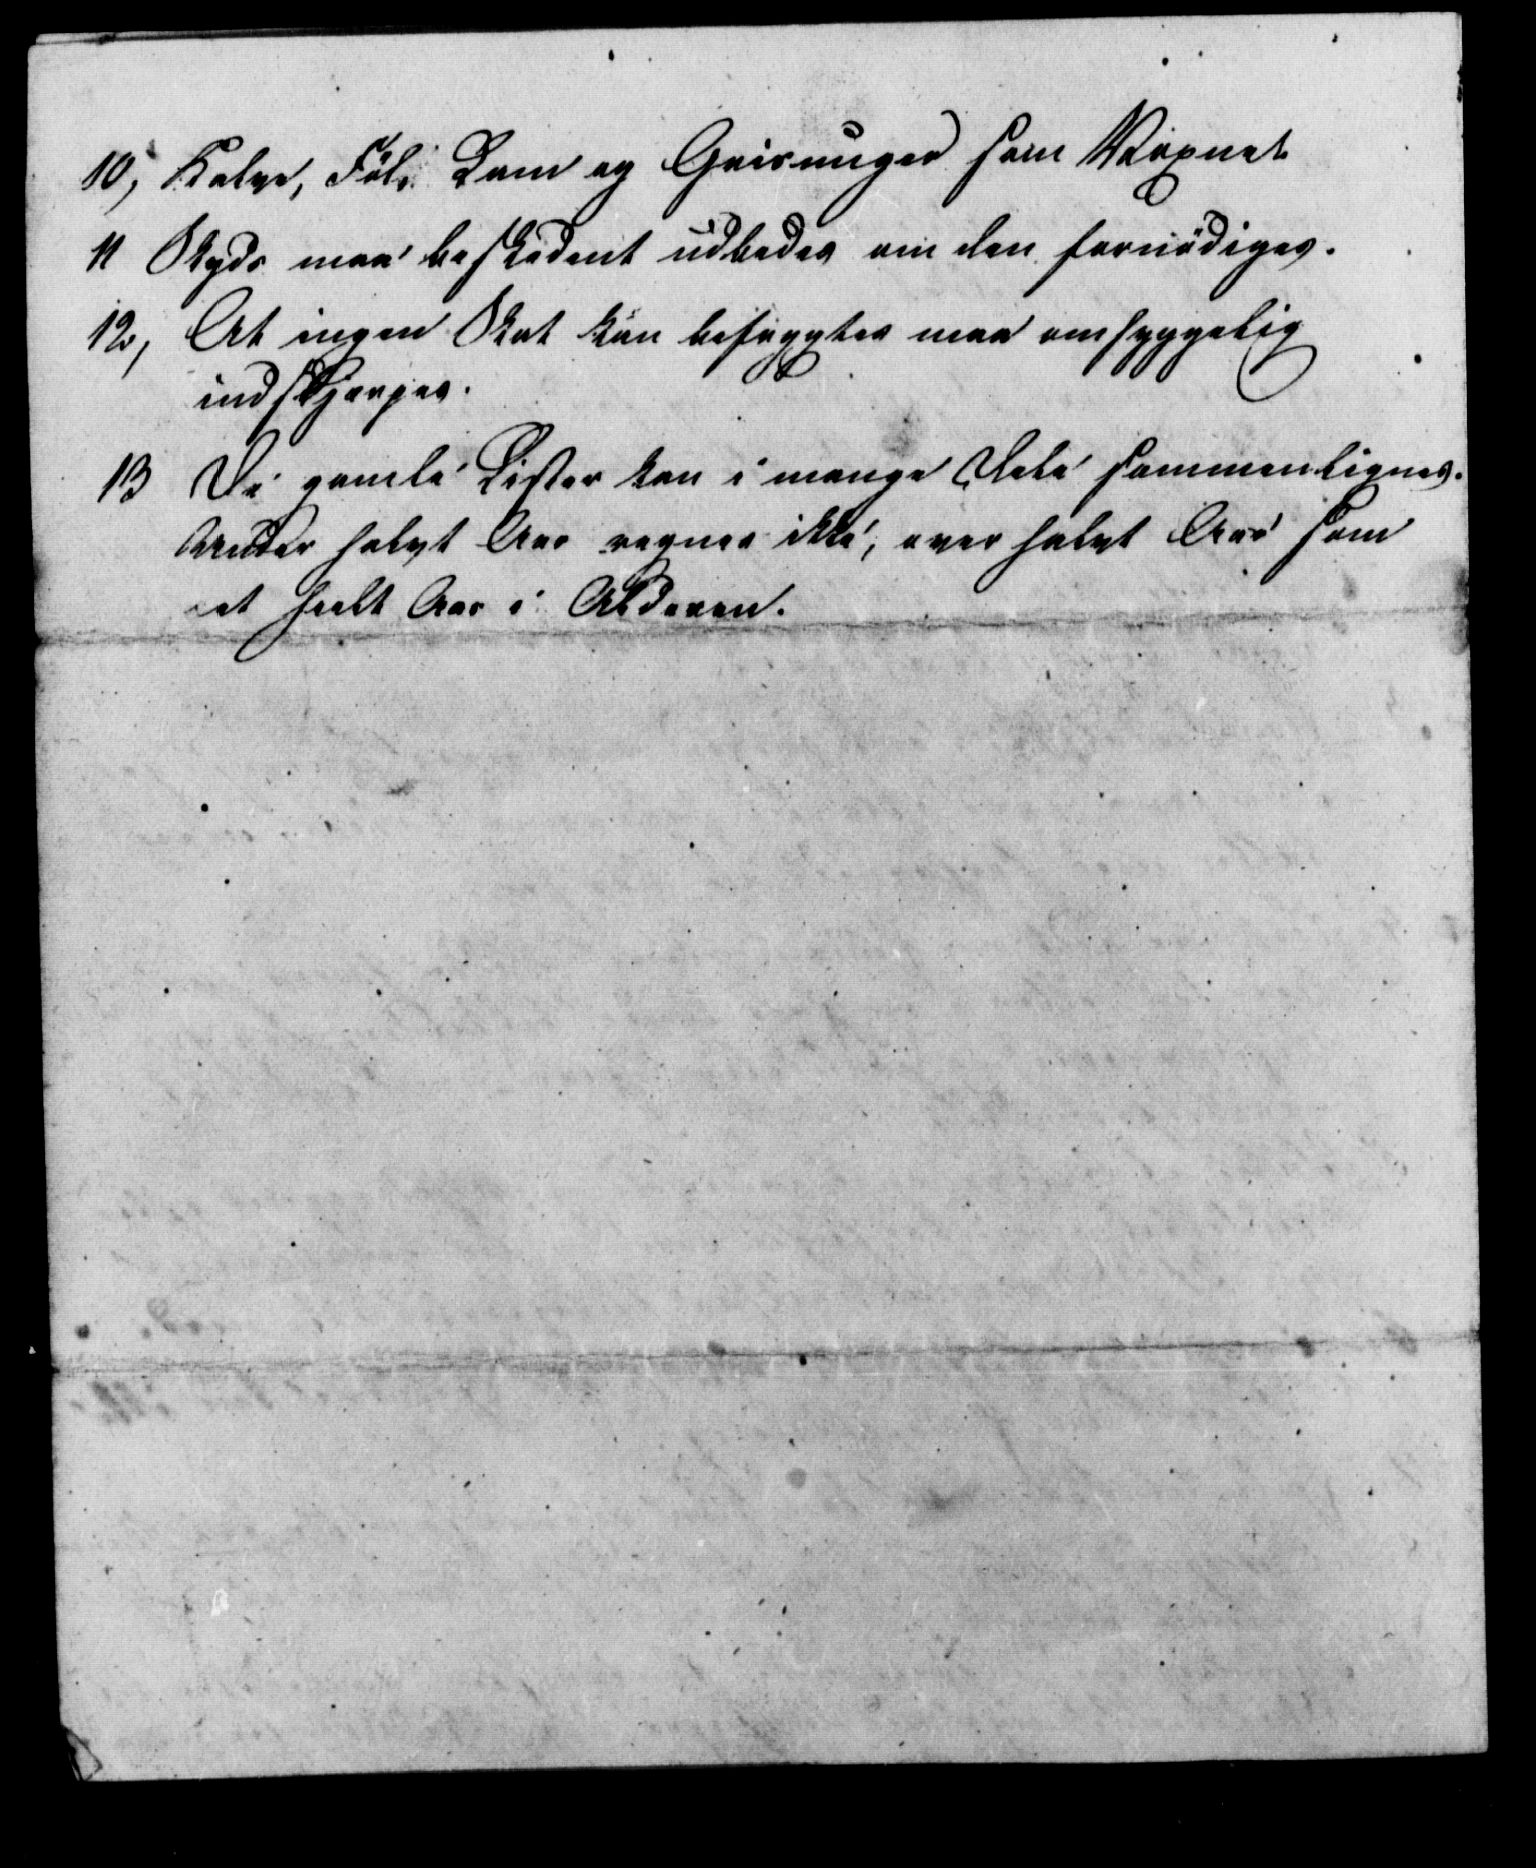 10, Kalve, Föl, Lam og Grisunger som Voxnet
11 Skyds maa beskedent udbedes om den fornödiges.
12, At ingen Skat kan befrygtes maa omhyggelig
indskjærpes.
13 De gamle Lister kan i mange Dele sammenlignes.
Under halvt Aar regnes ikke, over halvt Aar som
et heelt Aar i Alderen.